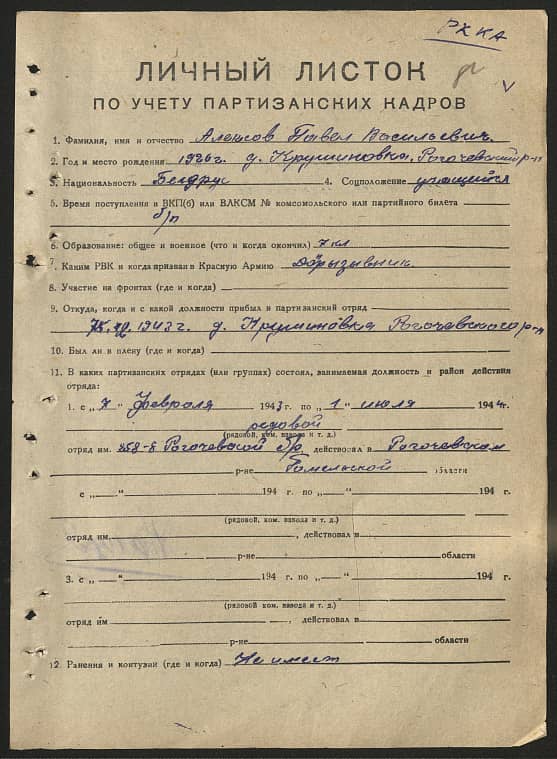 РККА
ЛИЧНЫЙ ЛИСТОК
ПО УЧЕТУ ПАРТИЗАНСКИХ КАДРОВ
1. Фамилия, имя и отчество Алексов Павел Васильевич.
2. Год и место рождения 1926 г. д. Крушиновка, Рогочевский р-н
3. Национальность Белорус 4. Соцположение учащийся
5. Время поступления в ВКП(б) или ВЛКСМ № комсомольского или партийного билета
б/п
6. Образование: общее и военное (что и когда окончил) 7 кл
7. Каким РВК и когда призван в Красную Армию Допризывник.
8. Участие на фронтах (где и когда)
9. Откуда, когда и с какой должности прибыл в партизанский отряд
1943 г. д. Крушиновка Рогочевского р-н
10. Был ли в плену (где и когда)
11. В каких партизанских отрядах (или группах) состоял, занимаемая должность и район действия
отряда:
1. с „ “ Февраля 1943 г. по „1“ июля 1944 г.
рядовой
(рядовой, ком. взвода и т. д.)
отряд им. 258-й Рогочевской бр действовал в Рогочевском
р-не Гомельской области
с „—“ 194 г. по „—“ 194 г.
(рядовой, ком. взвода и т. д.)
отряд им. , действовал в
р-не области
3. с „—“ 194 г. по „—“ 194 г.
(рядовой, ком. взвода и т. д.)
отряд им , действовал в
р-не области
12. Ранения и контузии (где и когда) Не имеет